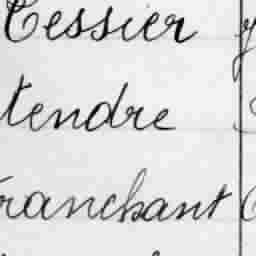 Tessier
tendre
ranchant